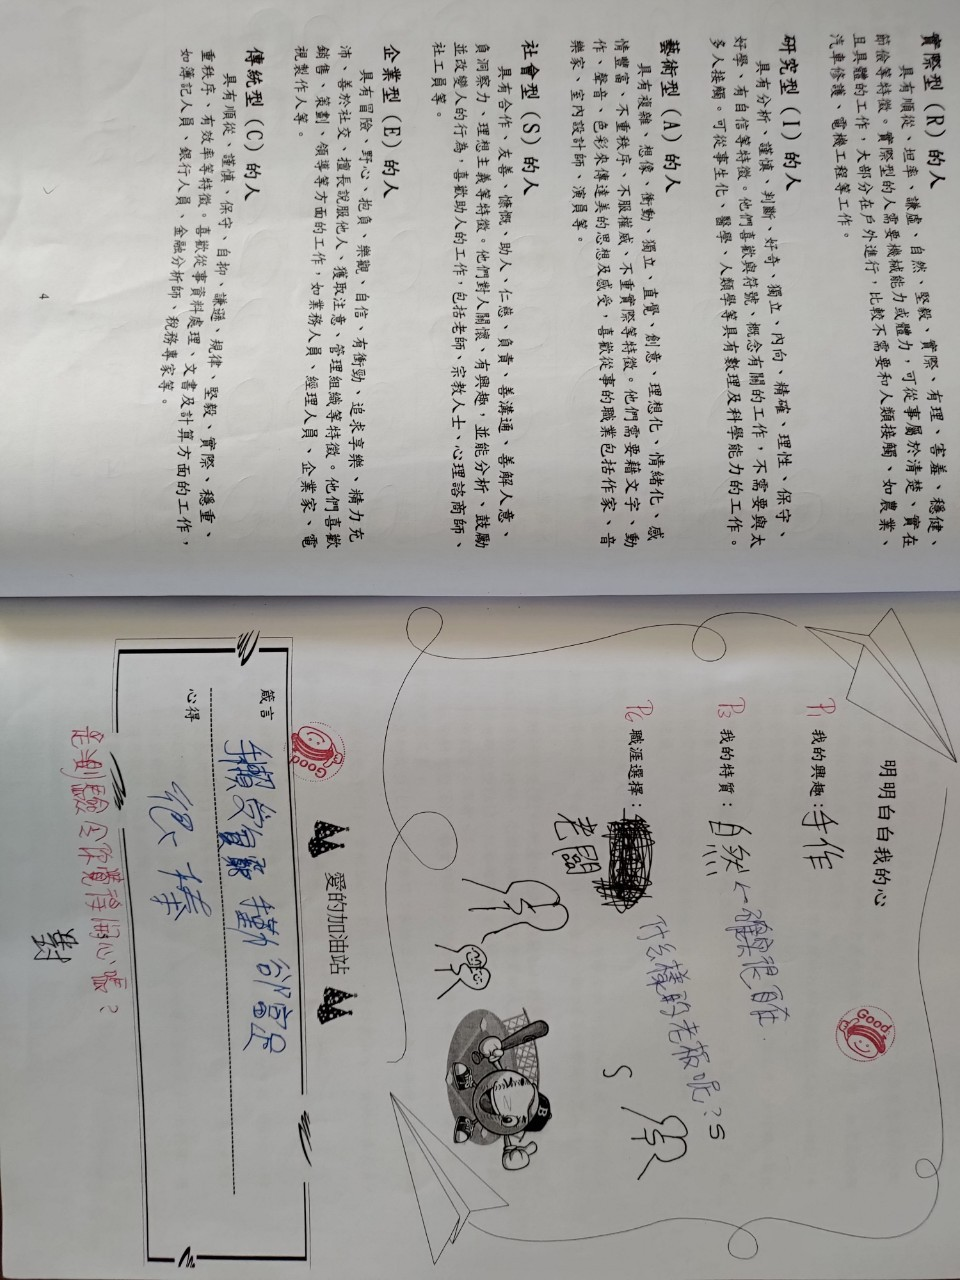 實際型(R)的人
具有順從、坦率、謙虛、自然、堅毅、實際、有理、害羞、穩健、
節儉等特徵。實際型的人需要機械能力或體力,可從事屬於清楚、實在
且具體的工作,大部分在戶外進行,比較不需要和人類接觸、如農業、
汽車修護、電機工程等工作。
研究型(I)的人
具有分析、謹慎、判斷、好奇、獨立、內向、精確、理性、保守、
好學、有自信等特徵。他們喜歡與符號、概念有關的工作,不需要與太
多人接觸。可從事生化、醫學、人類學等具有數理及科學能力的工作。
藝術型(A)的人
具有複雜、想像、衝動、獨立、直覺、創意、理想化、情緒化、感
情豐富、不重秩序、不服權威、不重實際等特徵。他們需要藉文字、動
作、聲音、色彩來傳達美的思想及感受,喜歡從事的職業包括作家、音
樂家、室內設計師、演員等。
社會型(S)的人
具有合作、友善、慷慨、助人、仁慈、負責、善溝通、善解人意、
負洞察力、理想主義等特徵。他們對人關懷、有興趣,並能分析、鼓勵
並改變人的行為,喜歡助人的工作,包括老師、宗教人士、心理諮商師、
社工員等。
企業型(E)的人
具有冒險、野心、抱負、樂觀、自信、有衝勁、追求享樂、精力充
沛、善於社交、擅長說服他人、獲取注意、管理組織等特徵。他們喜歡
銷售、策劃、領導等方面的工作,如業務人員、經理人員、企業家、電
視製作人等。
傳統型(C)的人
具有順從、謹慎、保守、自抑、謙遜、規律、堅毅、實際、穩重、
重秩序、有效率等特徵。喜歡從事資料處理、文書及計算方面的工作,
如簿記人員、銀行人員、金融分析師、稅務專家等。
4
明明白白我的心
Good
P1 我的興趣:手作
P3 我的特質:自然 ←確實很自在
P6 職涯選擇:
老闆
什么樣的老板呢?S
S
愛的加油站
Good
箴言
懶受貧 勤卻富足
心得
很棒
是測驗令你覺得開心嗎?
對